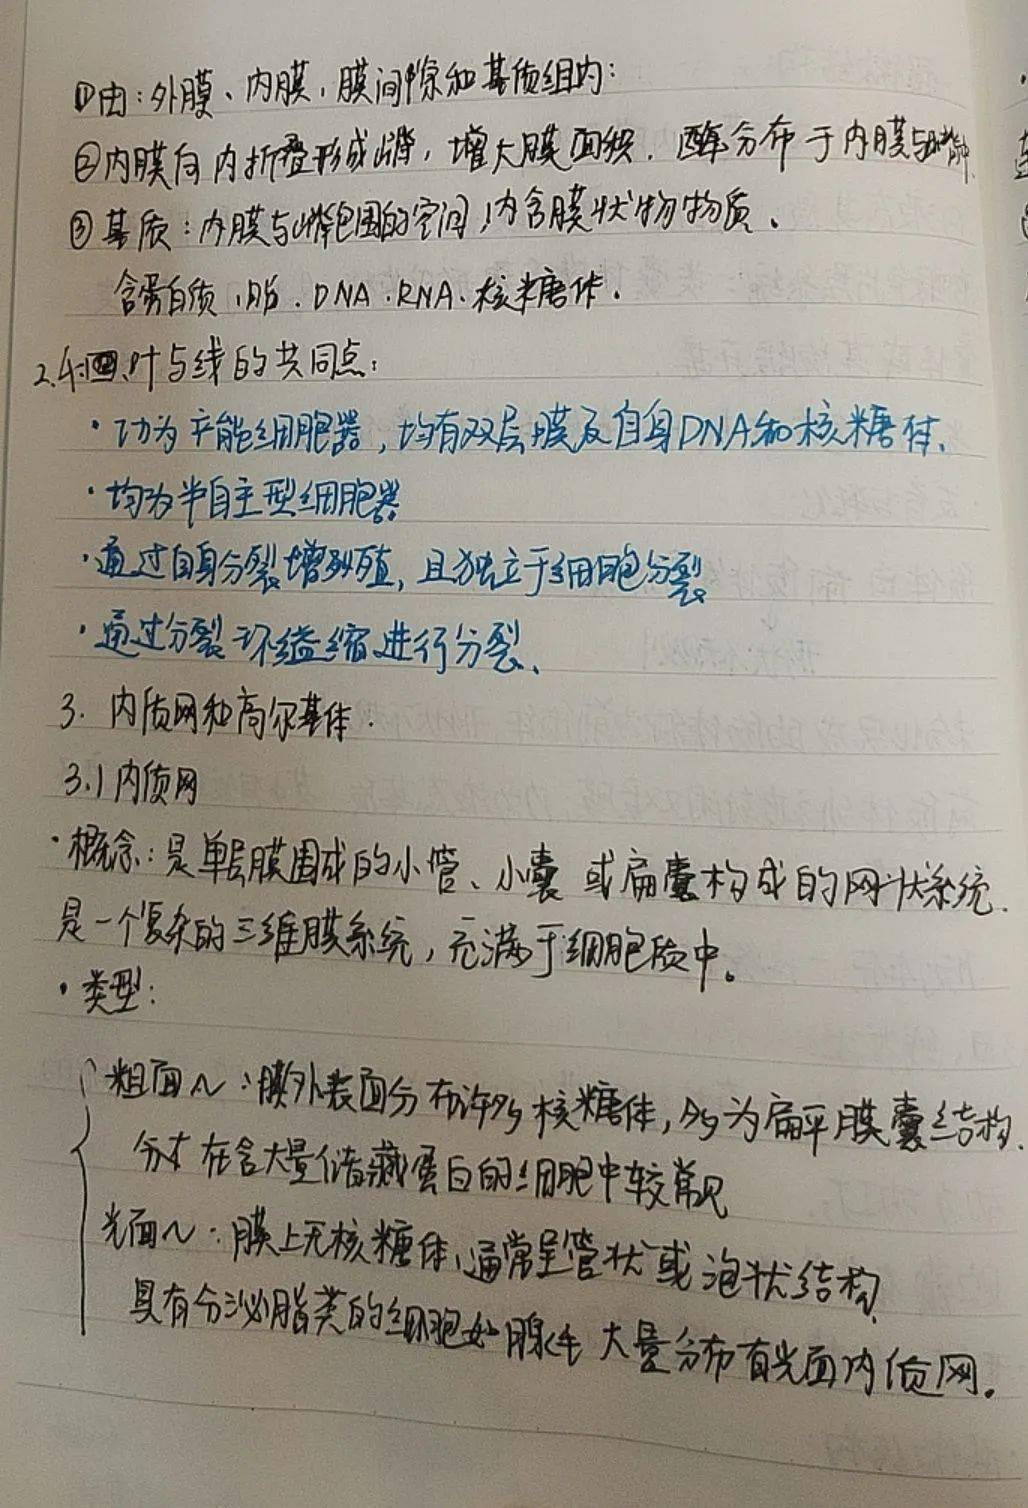 ①由:外膜、内膜,膜间隙和基质组内:
②内膜向内折叠形成嵴,增大膜面积.酶分布于内膜与嵴中.
③基质:内膜与嵴包围的空间,内含膜状物物质。
含蛋白质,脂.DNA.RNA.核糖体.
2. 叶与线的共同点:
·均为产能细胞器,均有双层膜及自身DNA和核糖体.
·均为半自主型细胞器
·通过自身分裂增殖,且独立于细胞分裂
·通过分裂环缢缩进行分裂.
3. 内质网和高尔基体.
3.1 内质网
·概念:是单层膜围成的小管、小囊或扁囊构成的网状系统.
是一个复杂的三维膜系统,充满于细胞质中。
·类型:
粗面~:膜外表面分布许多核糖体,多为扁平膜囊结构.
在含大量储藏蛋白的细胞中较常见
光面~:膜上无核糖体,通常呈管状或泡状结构,
具有分泌脂类的细胞如腺毛 大量分布有光面内质网.